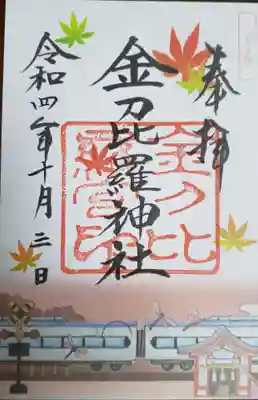 奉拝
金刀比羅神社
令和四年十月三日